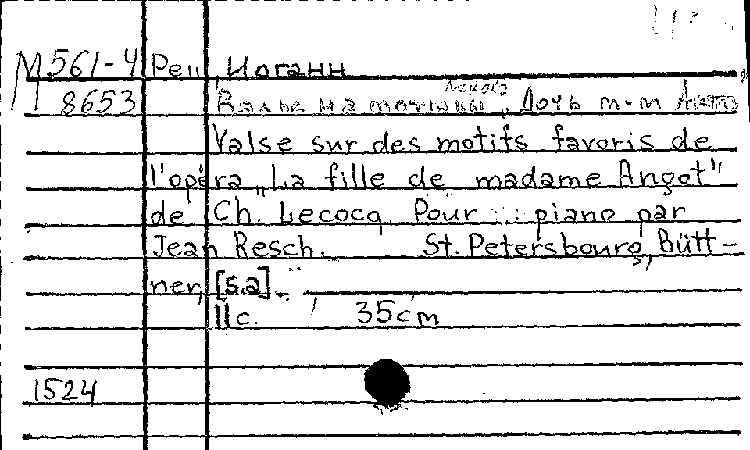 М 561-4 Реш, Иоганн
8653 Вальс на мотивы Лекока, Дочь м-м Анго
Valse sur des motifs favoris de
l'opéra „La fille de madame Angot"
de Ch. Lecocq Pour piano par
Jean Resch. St. Petersbourg, Bütt-
ner, [s.a].
11 c. 35 cm
1524